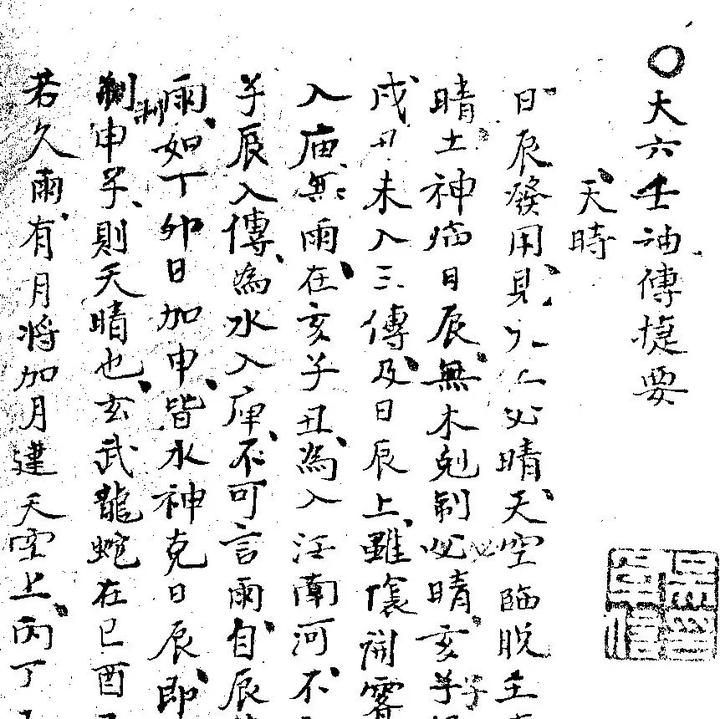 大六壬神傳捷要
天時
日辰發用見必晴天空臨脫主
晴土神臨日辰無木剋制必晴亥子
戌丑未入三傳及日辰上雖開霽
入庙無雨在亥子丑為入江南河不
子辰入傳為水入庫不可言雨自辰
雨如丁卯日加申皆水神克日辰即
制申子則天晴也玄武龍蛇在巳酉
若久雨有月將加月建天空上丙丁